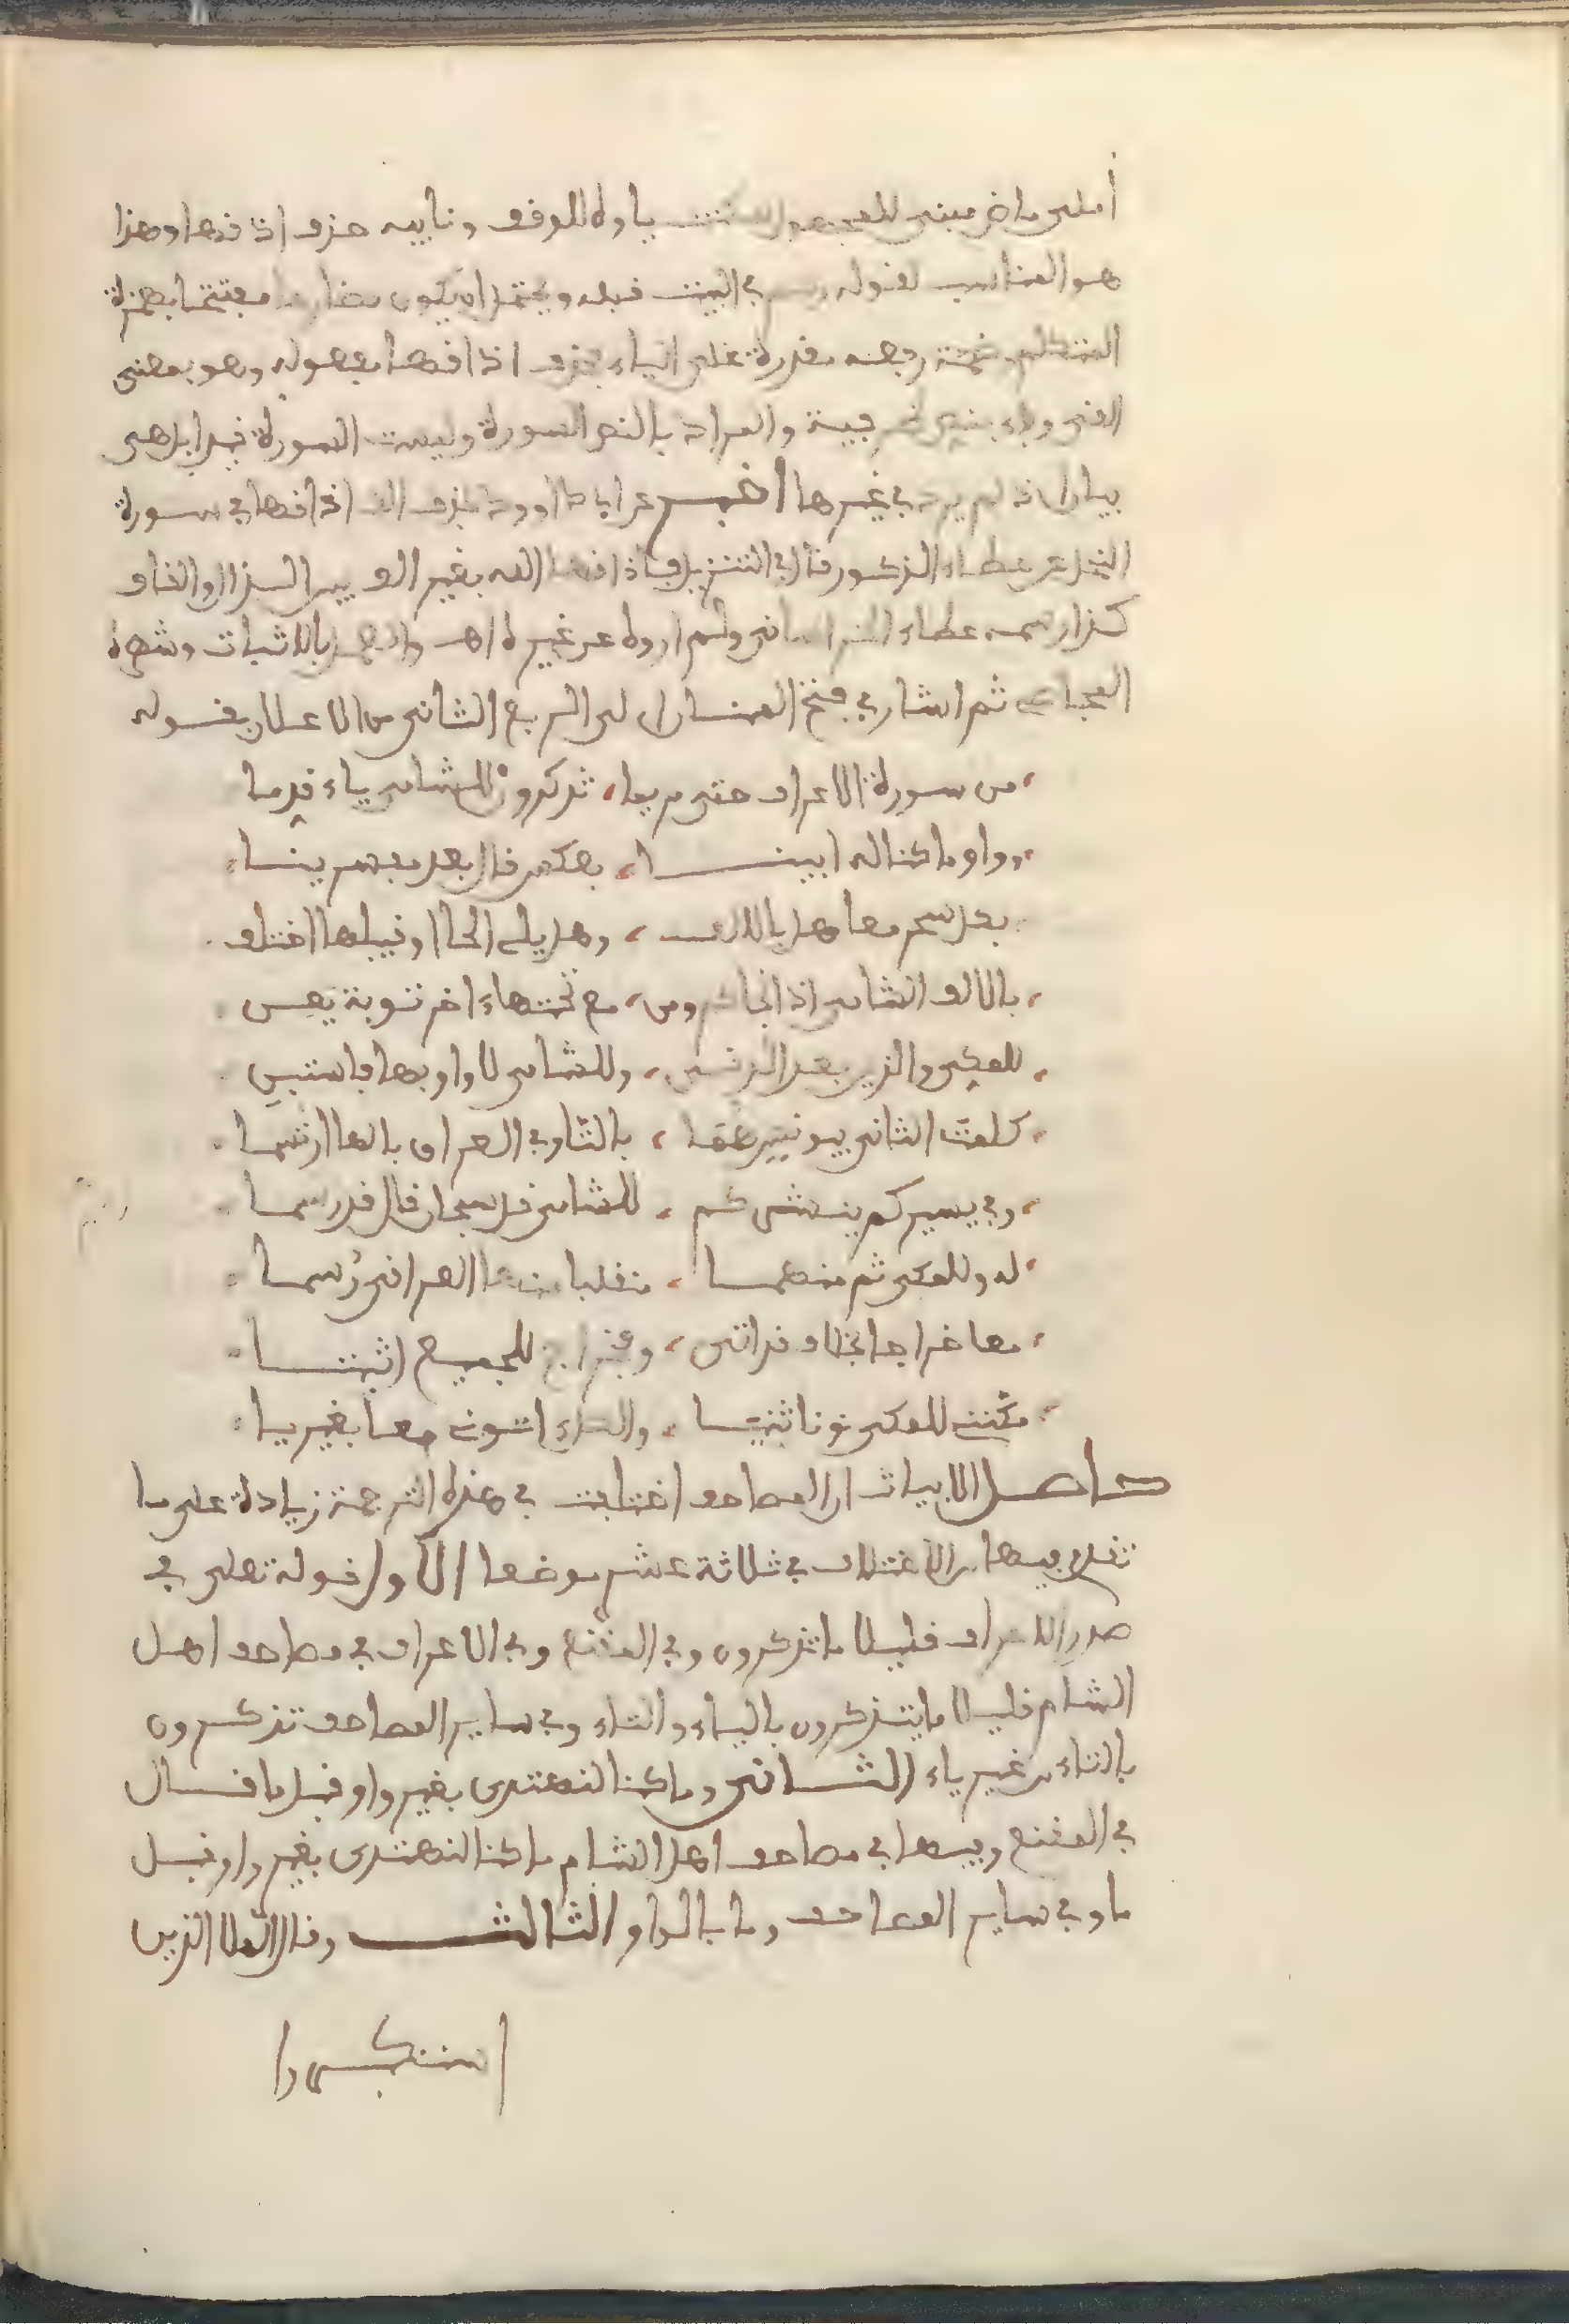 أملى ماض مبنى للمجهول سكنت ياوه للوقف ونايبه حذف اذاقها وهذا
هو المناسب لقوله رسم في البيت قبله ويحتمل ان يكون مضارعا مفتتحا بهمزة
المتكلم ضمة رفعه مقدرة على الياء فحذف اذاقها مفعوله وهو بمعنى
والمراد بالنحل السورة وليست السورة قيدا بل هى
بيان اذ لم يرد في غيرها اخبر عن ابى داوود بحذف الف اذاقها في سورة
النحل عن عطاء المذكور قال في التنزيل فاذاقها الله بغير الف بين الذال والقاف
كذا رسمه عطاء الخراسانى ولم اروه عن غيره اهـ والعمل بالاثبات وشهره
ثم اشار في فتح المنان الى الربع الثانى من الاعلان بقوله
من سورة الاعراف حتى مريما، تذكرون للشامى ياء قدما
وواو ما كنا له ابينا، بعكس قال بعد مفسدينا
بكل سحر معا هل بالالف، وهل يلى الحا او قبيلها اختلف
بالالف الشامى اذ انجاكم ومن، مع تحتهاء اخر توبة يعن
للمكى والذين بعد المدنى، وللشامى لا واو بها فاستبن
كلمت الثانى بيونس هما، بالتا وفي العراق بالها ارتسما
وفي يسيركم ينشركم، للشامى قل سبحان قال قد رسما
له وللمكى ثم منهما، منقلبا منها العراقى رسما
معا خراجا بخلاف قد اتى، وفخراج للجميع اثبتا
مكننى للمكى نونا ثنيا، والكل اتونى معا بغير يا
حاصل الابيات ان المصاحف اختلفت في هذه الترجمة زيادة على ما
تقدم فيها من الاختلاف في ثلاثة عشر موضعا الاول قوله تعلى في
صدر الاعراف قليلا ما تذكرون وفي المقنع وفي الاعراف في مصاحف اهل
الشام قليلا ما يتذكرون بالياء والتاء وفي ساير المصاحف تذكرون
بالتاء من غير ياء الثانى وما كنا لنهتدى بغير واو قبل ما قال
في المقنع وفيها في مصاحف اهل الشام ما كنا لنهتدى بغير واو قبل
ما وفي ساير المصاحف وما بالواو الثالث وقال الملا الذين
استكبروا